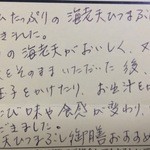 たっぷりの海老天ひつまぶし
きました。
の海老天がおいしく、
をそのままいただいた後、
子をかけたり、お出汁
び味や食感が変わり、
できました。
天ひつまぶし御膳おすすめ